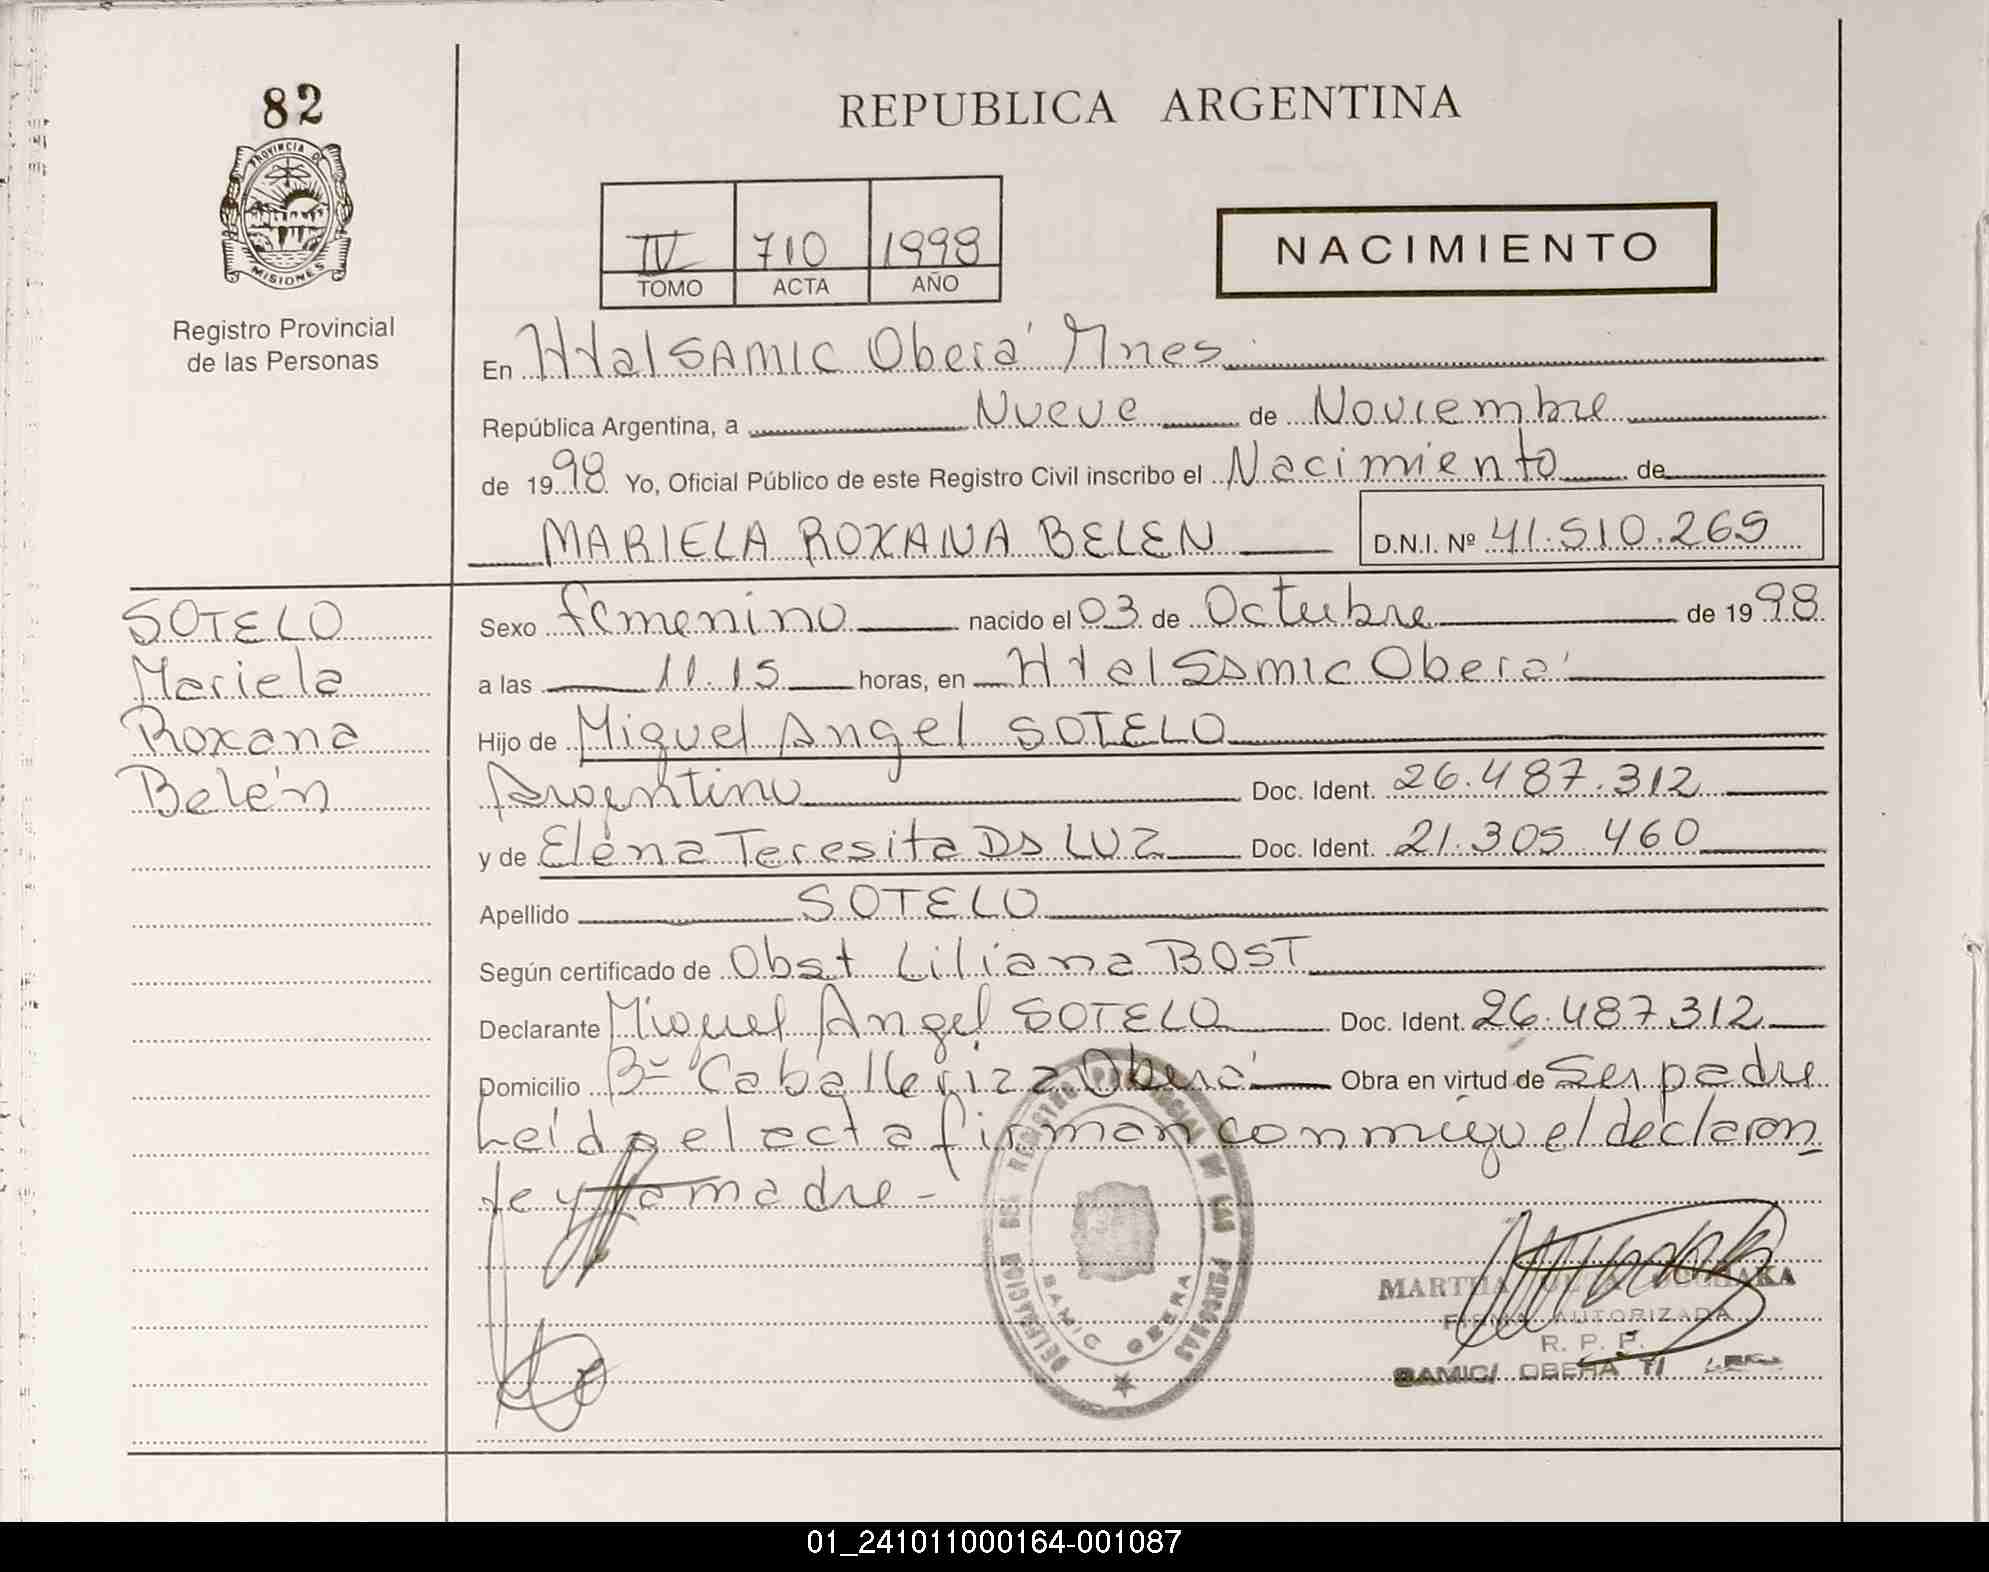 82
PROVINCIA DE
MISIONES
Registro Provincial
de las Personas
REPUBLICA ARGENTINA
IV 710 1998
TOMO ACTA AÑO
NACIMIENTO
En Htal SAMIC Oberá Mnes
República Argentina, a Nueve de Noviembre
de 1998 Yo, Oficial Público de este Registro Civil inscribo el Nacimiento de
MARIELA ROXANA BELEN D.N.I. Nº 41.510.265
SOTELO
Mariela
Roxana
Belén
Sexo femenino nacido el 03 de Octubre de 1998
a las 11.15 horas, en Htal Samic Oberá
Hijo de Miguel Angel SOTELO
Argentino Doc. Ident. 26.487.312
y de Elena Teresita DA LUZ Doc. Ident. 21.305.460
Apellido SOTELO
Según certificado de Obst Liliana BOST
Declarante Miguel Angel SOTELO Doc. Ident. 26.487.312
Domicilio Bº Caballeriza Oberá Obra en virtud de Ser padre
Leída el acta firman conmigo el declaran
te y la madre -
DELEGACION DEL REGISTRO PROVINCIAL DE LAS PERSONAS
SAMIC OBERA
MARTHA
FIRMA AUTORIZADA
R. P. P.
SAMIC/ OBERA
01_241011000164-001087